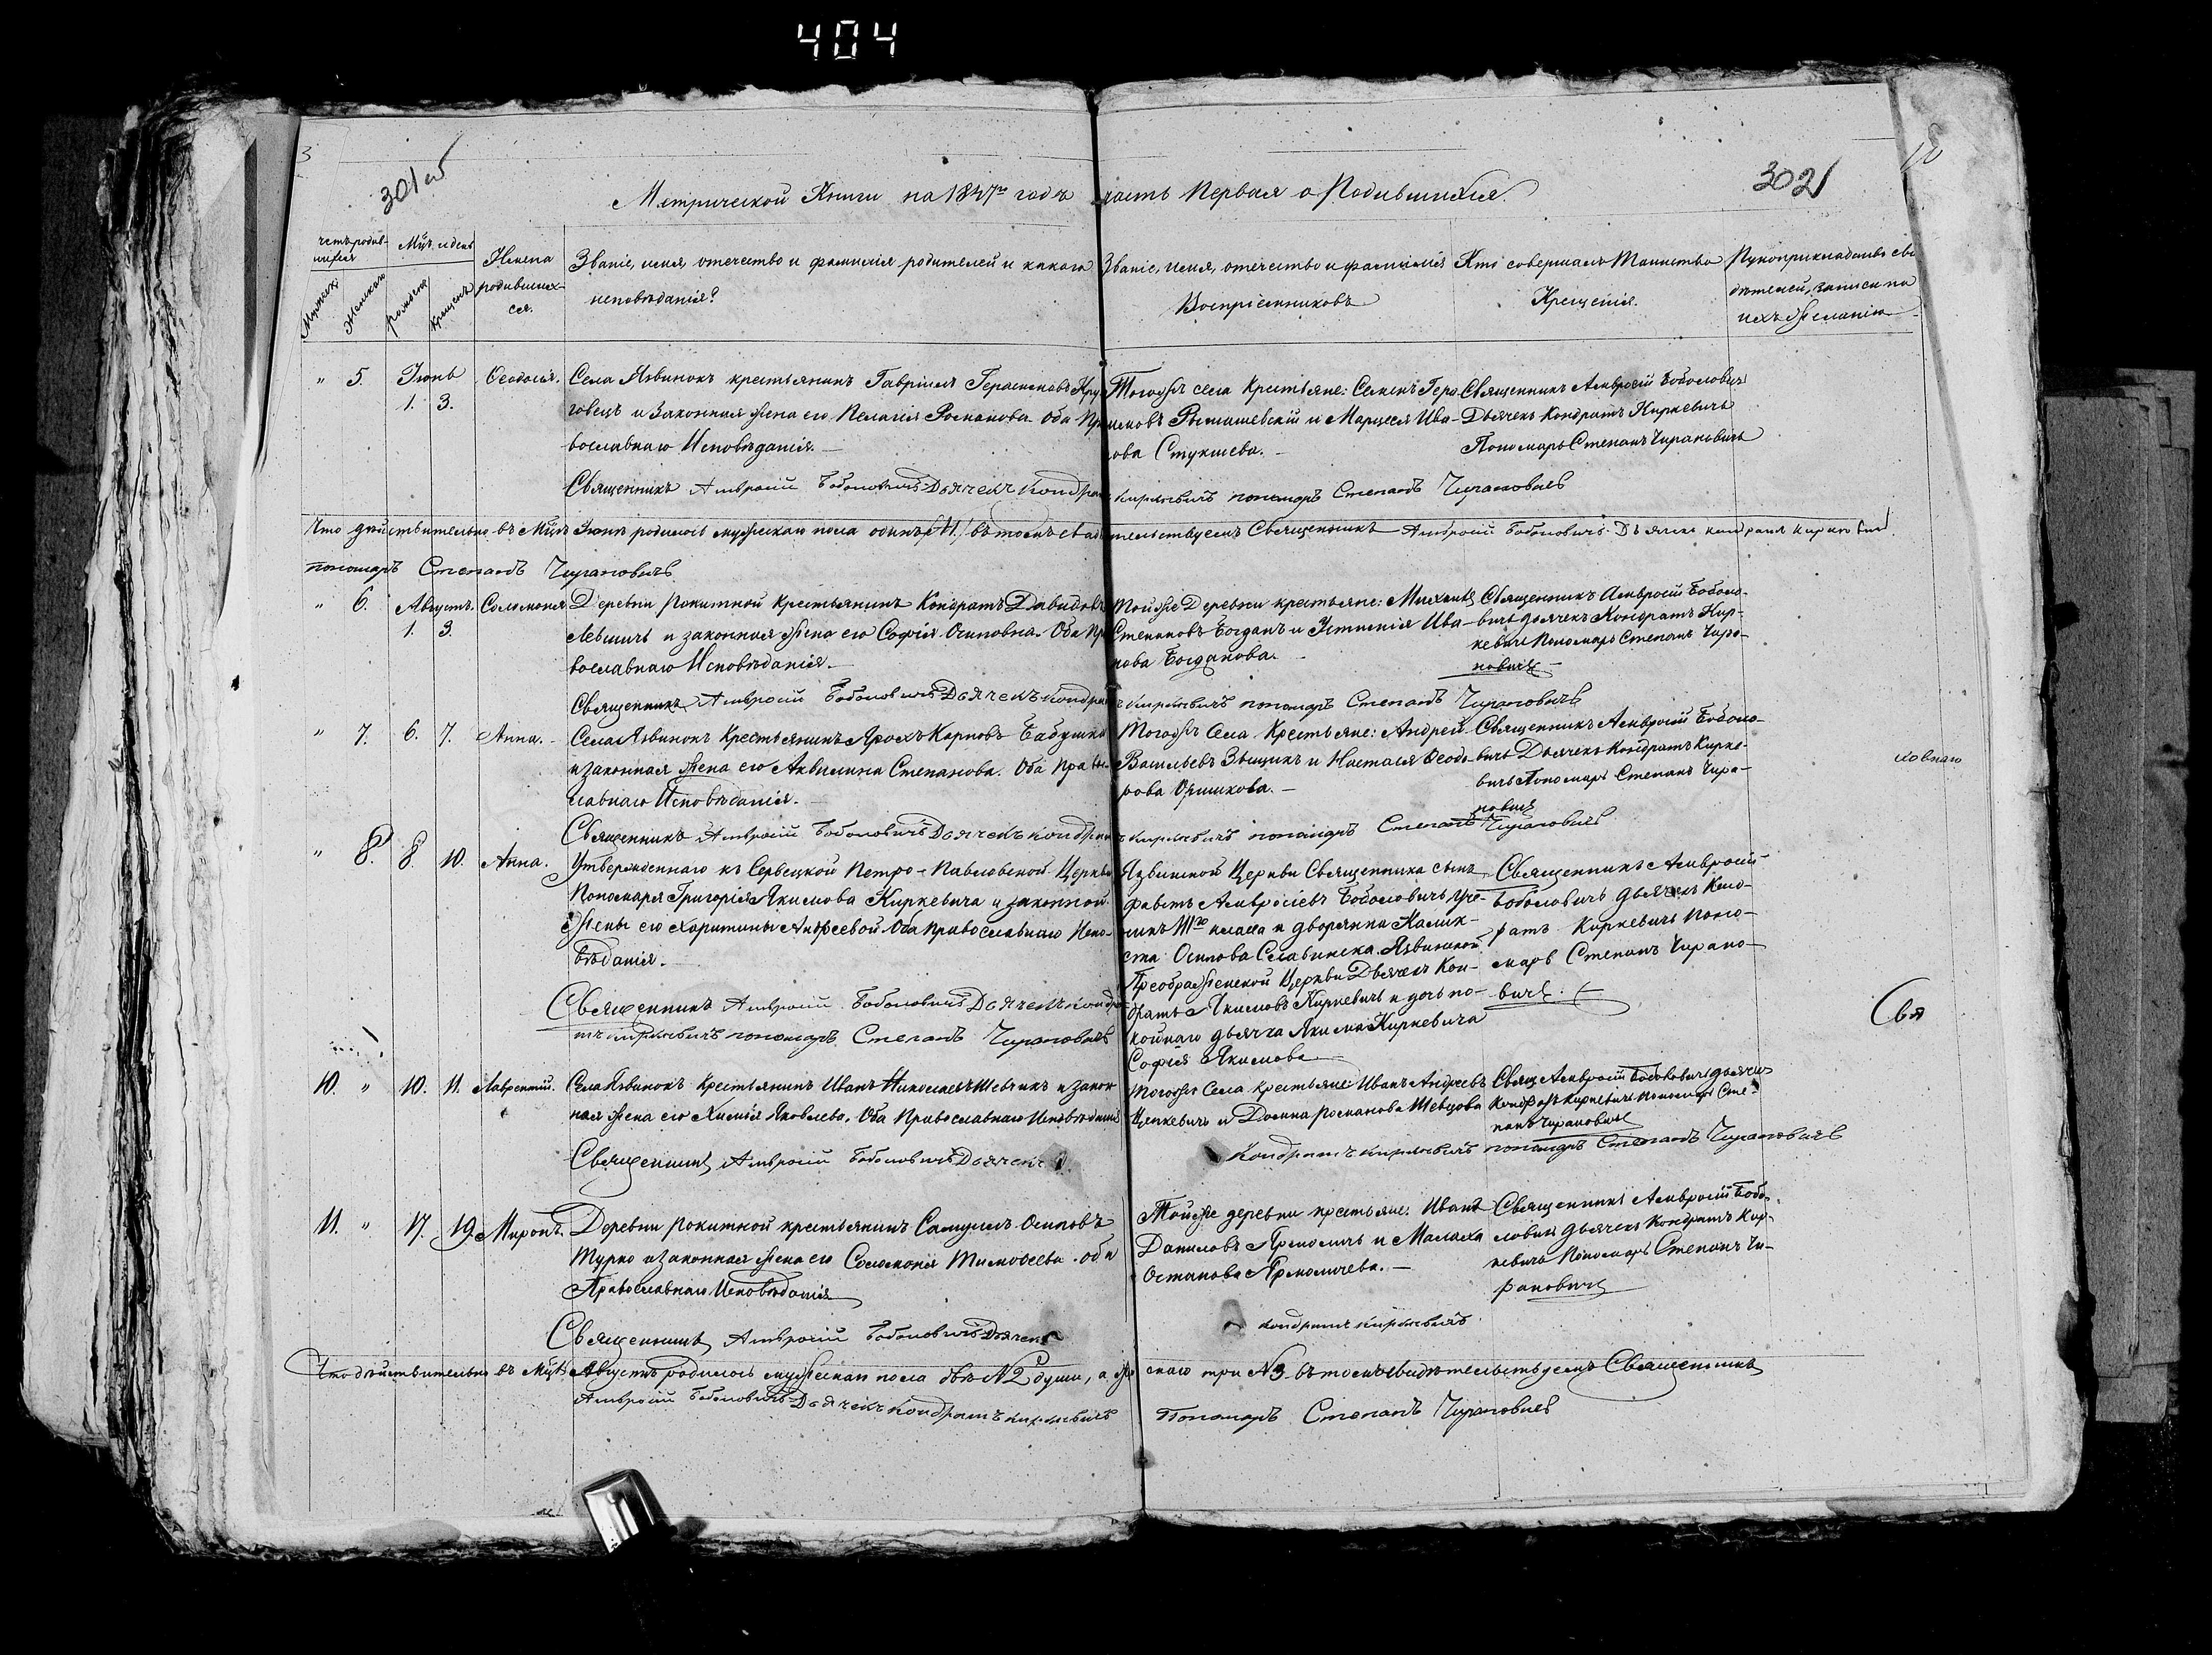 404
3
301 об
302
Метрической Книги на 1847го годъ часть Первая о Родившихся.
Мужеска
Женска
Мцъ и день
рожденія
крещенія
Имена
родивших-
ся.
Званіе, имя, отечество и фамилія родителей и какого
исповѣданія?
Званіе, имя, отечество и фамилія
Воспріемниковъ
Кто совершалъ Таинство
Крещенія.
Рукоприкладство сви
дѣтелей, записи по
ихъ желанію
" 5. Іюнь Ѳеодосія.
1. 3.
Села Язвинокъ крестьянинъ Гавріилъ Герасимовъ Кру-
говецъ и Законная жена его Пелагія Романова. Оба Пра
вославнаго Исповѣданія.
Тогожъ села Крестьяне: Семенъ Гера
симовъ Ромашевскій и Марцеля Ива-
нова Стукшева. -
Священникъ Амвросій Боболовичъ
Дьячекъ Кондратъ Киркевичъ
Пономарь Степанъ Чирановичъ
Священникъ Амвросій Боболовичъ Дьячекъ Кондратъ Киркевичъ пономаръ Степанъ Чирановичъ
Что дѣйствительно въ Мцѣ Іюнѣ родилось мужескаго пола одинъ №1. въ томъ свидѣтельствуемъ Священникъ Амвросій Боболовичъ Дьячекъ Кондратъ Киркевичъ
пономаръ Степанъ Чирановичъ
" 6. Августъ. Соломонія
1. 3.
Деревни Рокитной Крестьянинъ Кондратъ Давидовъ
Левшичъ и законная жена его Софія Осиповна. Оба Пра
вославнаго Исповѣданія.
Тойже Деревни крестьяне: Михаилъ
Степановъ Богданъ и Устинія Ива-
нова Богданова. -
Священникъ Амвросій Боболо-
вичъ Дьячекъ Кондратъ Кир-
кевичъ Пономарь Степанъ Чира-
новичъ
Священникъ Амвросій Боболовичъ Дьячекъ Кондратъ Киркевичъ пономаръ Степанъ Чирановичъ
" 7. 6. 7. Анна.
Села Язвинокъ Крестьянинъ Ярохъ Карповъ Бабушка
и законная жена его Аквилина Степанова. Оба Право-
славнаго Исповѣданія.
Тогожъ Села Крестьяне: Андрей
Васильевъ Зыщикъ и Настася Ѳеодо-
рова Оришкова. -
Священникъ Амвросій Боболо-
вичъ Дьячекъ Кондратъ Кирке-
вичъ Пономарь Степанъ Чира-
новичъ
ловнаго
Священникъ Амвросій Боболовичъ Дьячекъ Кондратъ Киркевичъ пономаръ Степанъ Чирановичъ
" 8. 8. 10. Анна.
Утвержденнаго къ Сервецкой Петро-Павловской Церкви
Пономаря Григорія Якимова Киркевича и законной
Жены его Харитины Андреевой. Оба Православнаго Испо-
вѣданія.
Язвинской Церкви Священника сынъ
Амвросіевъ Боболовичъ уче-
никъ класса и дворянка Калик-
ста Осипова Славинска. Язвинской
Преображенской Церкви Дьячекъ Кон-
дратъ Якимовъ Киркевичъ и дочь по-
койнаго дьячка Якима Киркевича
Софія Якимова
Священникъ Амвросій
Боболовичъ дьячекъ Конд-
ратъ Киркевичъ Поно-
марь Степанъ Чирано-
вичъ.
Свя
Священникъ Амвросій Боболовичъ Дьячекъ Кондра
тъ Киркевичъ пономаръ Степанъ Чирановичъ
10. " 10. 11. Лаврентій.
Села Язвинокъ Крестьянинъ Иванъ Николаевъ Шевчикъ и закон
ная жена его Химія Яковлева. Оба Православнаго Исповѣданія
Тогожъ Села крестьяне: Иванъ Андреевъ
Цепкевичъ и Домна Романова Шевцова
Свящ. Амвросій Боболовичъ дьячекъ
Кондратъ Киркевичъ Пономарь Сте-
панъ Чирановичъ
Священникъ Амвросій Боболовичъ Дьячекъ Кондратъ Киркевичъ пономаръ Степанъ Чирановичъ
11. " 17. 19. Миронъ.
Деревни Рокитной крестьянинъ Самуилъ Осиповъ
Турко и законная жена его Соломонія Тимоѳеева. оба
Православнаго Исповѣданія
Тойже деревни крестьяне: Иванъ
Даниловъ Ярмоличъ и Малаха
Остапова Ярмоличева. -
Священникъ Амвросій Бобо-
ловичъ дьячекъ Кондратъ Кир-
кевичъ Пономарь Степанъ Чи-
рановичъ
Священникъ Амвросій Боболовичъ Дьячекъ Кондратъ Киркевичъ
Что дѣйствительно въ Мцѣ Августѣ родилось мужескаго пола двѣ №2 души, а жен скаго три №3. въ томъ свидѣтельствуемъ Священникъ
Амвросій Боболовичъ Дьячекъ Кондратъ Киркевичъ Пономаръ Степанъ Чирановичъ